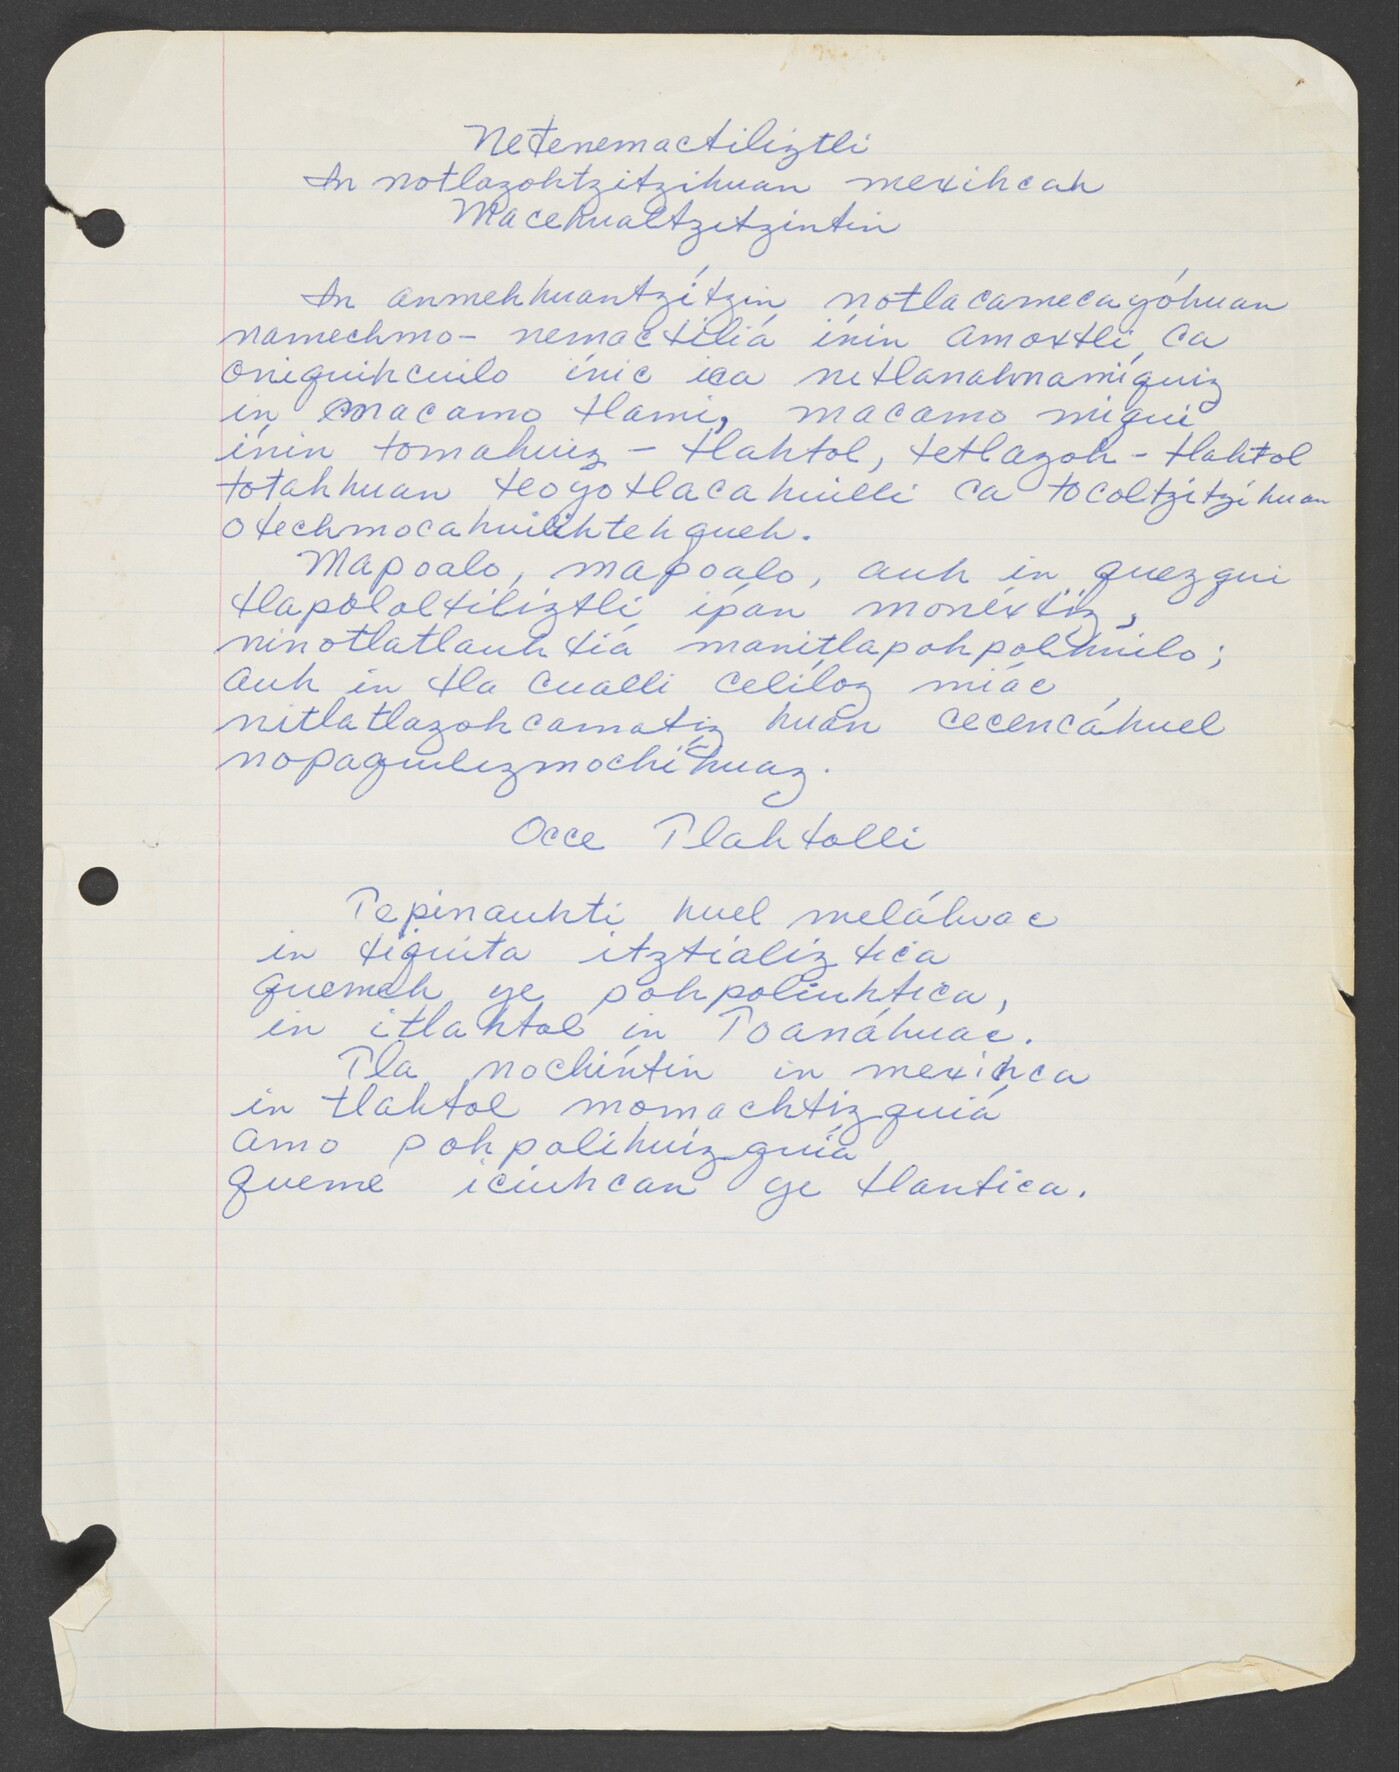 Netenemactiliztli
In notlazohtzitzihuan mexihcah
Macehualtzitzintin
In anmehhuantzítzin, notlacamecayóhuan
namechmo- nemactiliá inin amoxtli, ca
oniquihcuilo ínic ica netlanahnamíquiz
in macamo tlami, macamo miqui
ínin tomahuiz - tlahtol, tetlazoh - tlahtol
totahhuan teoyotlacahuilli ca tocoltzitzihuan
otechmocahuilihtehqueh.
Mapoalo, mapoalo, auh in quezqui
tlapololtiliztli ipan monéxtiz,
ninotlatlauhtiá manitlapohpolihuilo;
auh in tla cualli celíloz miác
nitlatlazohcamatiz huan cecencáhuel
nopaquilizmochíhuaz.
Occe Tlahtolli
Tepinauhti huel meláhuac
in tiquita itztializtica
quemeh ye pohpoliuhtica,
in itlahtol in Toanáhuac.
Tla nochíntin in mexihca
in tlahtol momachtizquiá
amo pohpolihuizquía
queme iciuhcan ye tlantica.